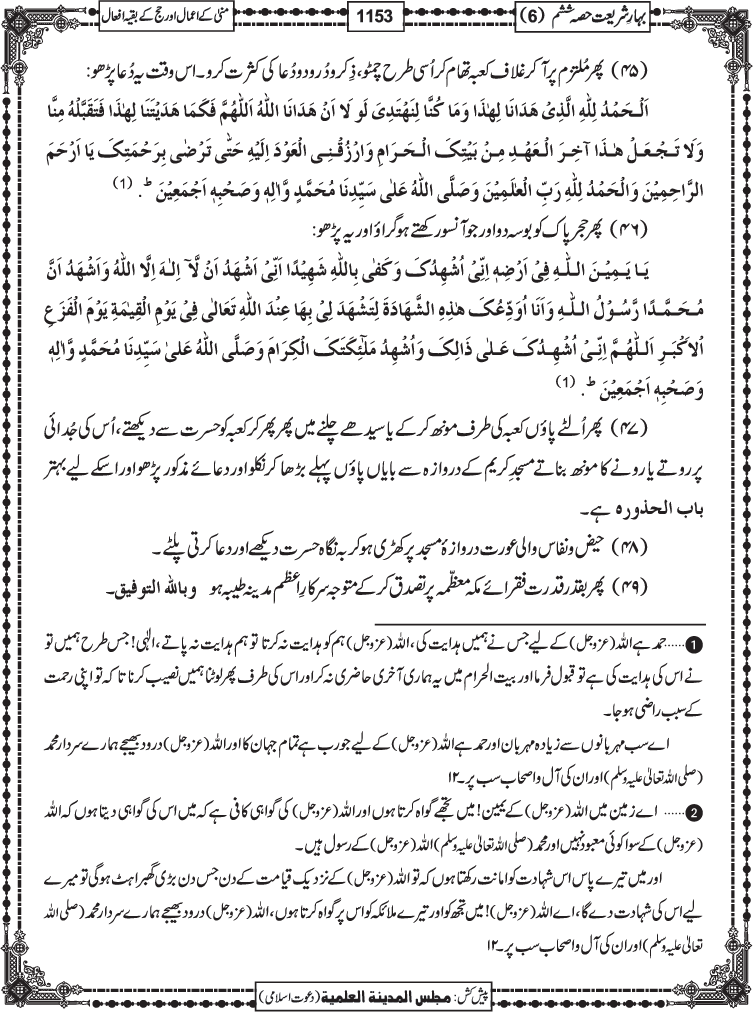 بہارِ شریعت حصہ ششم (6)
1153
منیٰ کے اعمال اور حج کے بقیہ افعال
(۴۵) پھر مُلتزم پر آ کر غلاف کعبہ تھام کر اُسی طرح چمٹو، ذِکر و دُرود و دُعا کی کثرت کرو۔ اس وقت یہ دُعا پڑھو:
اَلْحَمْدُ لِلّٰهِ الَّذِیْ هَدَانَا لِهٰذَا وَمَا کُنَّا لِنَهْتَدِیَ لَو لَا اَنْ هَدَانَا اللهُ اَللّٰهُمَّ فَکَمَا هَدَیْتَنَا لِهٰذَا فَتَقَبَّلْهُ مِنَّا
وَلَا تَجْعَلْ هٰذَا آخِرَ الْعَهْدِ مِنْ بَیْتِکَ الْحَرَامِ وَارْزُقْنِی الْعَوْدَ اِلَیْهِ حَتّٰی تَرْضٰی بِرَحْمَتِکَ یَا اَرْحَمَ
الرَّاحِمِیْنَ وَالْحَمْدُ لِلّٰهِ رَبِّ الْعٰلَمِیْنَ وَصَلَّی اللهُ عَلٰی سَیِّدِنَا مُحَمَّدٍ وَّاٰلِهٖ وَصَحْبِهٖ اَجْمَعِیْنَ ؕ . (1)
(۴۶) پھر حجر پاک کو بوسہ دو اور جو آنسو رکھتے ہو گراؤ اور یہ پڑھو:
یَا یَمِیْنَ اللّٰهِ فِیْ اَرْضِهٖ اِنِّیْ اُشْهِدُکَ وَکَفٰی بِاللهِ شَهِیْدًا اَنِّیْ اَشْهَدُ اَنْ لَّآ اِلٰهَ اِلَّا اللهُ وَاَشْهَدُ اَنَّ
مُحَمَّدًا رَّسُوْلُ اللّٰهِ وَاَنَا اُوَدِّعُکَ هٰذِهِ الشَّهَادَةَ لِتَشْهَدَ لِیْ بِهَا عِنْدَ اللهِ تَعَالٰی فِیْ یَوْمِ الْقِیٰمَةِ یَوْمَ الْفَزَعِ
اْلاَکْبَرِ اَللّٰهُمَّ اِنِّیْ اُشْهِدُکَ عَلٰی ذَالِکَ وَاُشْهِدُ مَلٰٓئِکَتَکَ الْکِرَامَ وَصَلَّی اللهُ عَلیٰ سَیِّدِنَا مُحَمَّدٍ وَّاٰلِهٖ
وَصَحْبِهٖ اَجْمَعِیْنَ ؕ . (1)
(۴۷) پھر اُلٹے پاؤں کعبہ کی طرف مونھ کر کے یا سیدھے چلنے میں پھر پھر کر کعبہ کو حسرت سے دیکھتے، اُس کی جُدائی
پر روتے یا رونے کا مونھ بناتے مسجدِ کریم کے دروازہ سے بایاں پاؤں پہلے بڑھا کر نکلو اور دعائے مذکور پڑھو اور اسکے لیے بہتر
باب الحذورہ ہے۔
(۴۸) حیض و نفاس والی عورت دروازۂ مسجد پر کھڑی ہو کر بہ نگاہ حسرت دیکھے اور دعا کرتی پلٹے۔
(۴۹) پھر بقدر قدرت فقرائے مکہ معظّمہ پر تصدق کر کے متوجہ سرکارِ اعظم مدینہ طیبہ ہو وباللّٰه التوفیق۔
1 ......حمد ہے اللہ (عزوجل) کے لیے جس نے ہمیں ہدایت کی، اللہ (عزوجل) ہم کو ہدایت نہ کرتا تو ہم ہدایت نہ پاتے، الٰہی! جس طرح ہمیں تو
نے اس کی ہدایت کی ہے تو قبول فرما اور بیت الحرام میں یہ ہماری آخری حاضری نہ کر اور اس کی طرف پھر لوٹنا ہمیں نصیب کرنا تا کہ تو اپنی رحمت
کے سبب راضی ہو جا۔
اے سب مہربانوں سے زیادہ مہربان اور حمد ہے اللہ (عزوجل) کے لیے جو رب ہے تمام جہان کا اور اللہ (عزوجل) درود بھیجے ہمارے سردار محمد
(صلی اللہ تعالیٰ علیہ وسلم) اور ان کی آل و اصحاب سب پر۔ ۱۲
2 ...... اے زمین میں اللہ (عزوجل) کے یمین! میں تجھے گواہ کرتا ہوں اور اللہ (عزوجل) کی گواہی کافی ہے کہ میں اس کی گواہی دیتا ہوں کہ اللہ
(عزوجل) کے سوا کوئی معبود نہیں اور محمد (صلی اللہ تعالیٰ علیہ وسلم) اللہ (عزوجل) کے رسول ہیں۔
اور میں تیرے پاس اس شہادت کو امانت رکھتا ہوں کہ تو اللہ (عزوجل) کے نزدیک قیامت کے دن جس دن بڑی گھبراہٹ ہوگی تو میرے
لیے اس کی شہادت دے گا، اے اللہ (عزوجل)! میں تجھ کو اور تیرے ملائکہ کو اس پر گواہ کرتا ہوں، اللہ (عزوجل) درود بھیجے ہمارے سردار محمد (صلی اللہ
تعالیٰ علیہ وسلم) اور ان کی آل و اصحاب سب پر۔ ۱۲
پیش کش: مجلس المدینة العلمیة (دعوت اسلامی)